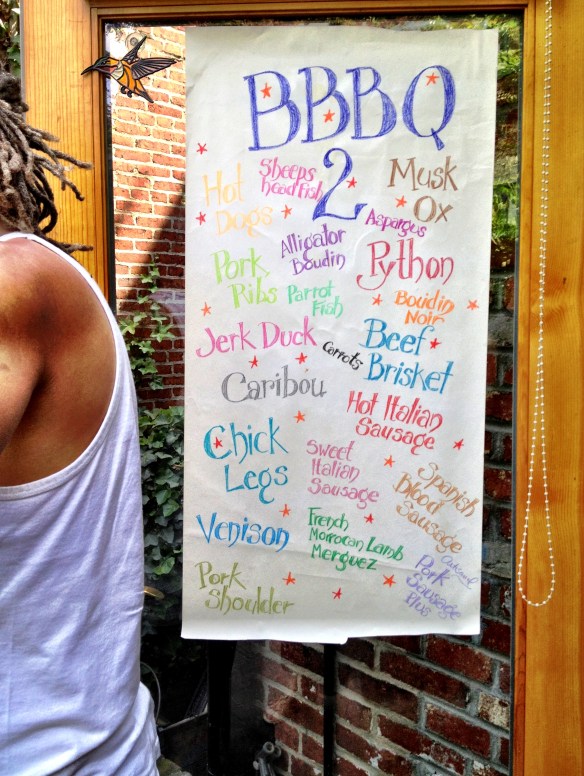 BBBQ
2
Hot
Dogs
Sheeps
head fish
Musk
Ox
Aspargus
Alligator
Boudin
Python
Pork
Ribs
Parrot
Fish
Boudin
Noir
Jerk Duck
Carrots
Beef
Brisket
Caribou
Hot Italian
Sausage
Chick
Legs
Sweet
Italian
Sausage
Spanish
Blood
Sausage
Venison
French
Morrocan Lamb
Merguez
Pork
Shoulder
Pork
Sausage
Plus